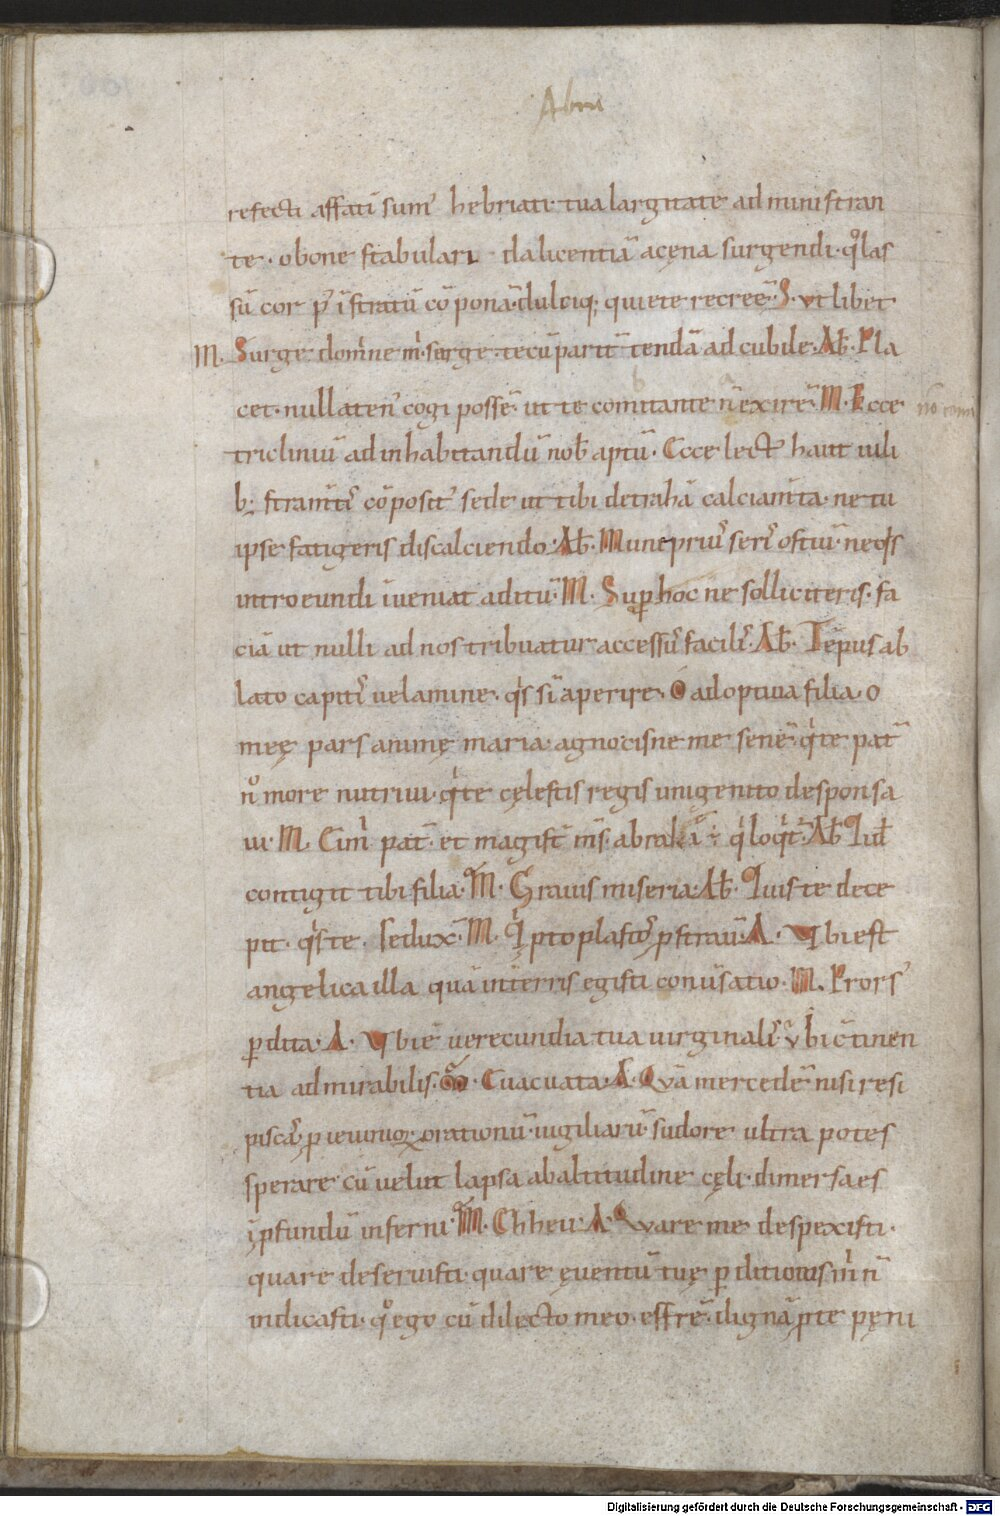 Abra
refecti affati sumꝰ hebriati tua largitate administran
te · o bone stabulari da licentiā a cęna surgendi · qͦ las
sū cor pꝰ ī stratū cōponā · dulciq; quiete recreē · S · vt libet
M. Surge domīne mi surge · tecū parit̄ tendā ad cubile · Ab̄ · Pla
cet · nullatenꝰ cogi possē · ut te comitante n̄ exirē · M · Ecce
tricliniū ad inhabitandū nob̄ aptū · Ecce lectꝰ haut vili
b; stram̄tꝭ cōposit̄ sede ut tibi detrahā calciam̄ta · ne tu
ipse fatigeris discalciendo · Ab̄ · Muni priuꝰ serꝭ ostiū · ne qͥs
introeundi īveniat aditū · M · Sup̄ hoc ne solliciteris · fa
ciā ut nulli ad nos tribuatur accessꝰ facilꝭ · Ab̄ · Tēpus ab
lato capitꝭ velamine · qͥs sī aperire · O adoptiva filia · o
meę pars animę maria · agnoscisne me senē · qͥ te pat̄
no more nutrivi · qͥ te cęlestis regis unigenito desponsa
vi · M. Eim̄ pat̄ · et magist̄ m̄s abrahā · qͥ loqͥt̄ · Ab̄ · Qid
contigit tibi filia · M · Gravis miseria · Ab̄ · Quis te dece
pit · qͥs te · sedux̄ · M · Qͥ ptoplastoꝭ pstravī · A · Vbi est
angelica illa quā in terris egisti conūsatio · M. Prorsꝰ
ꝑdita · A · Vbi ē verecundia tua virginalꝭ vbi c̄tinen
tia admirabilis · M · Evacuata · A · Quā mercedē nisi resi
piscaꝭ ꝑ ieiunioꝝ orationū · vigiliarū · sudore ultra potes
sperare cū velut lapsa ab altitudine cęli · dimersa es
ī pfundū inferni · M · Eh heu · A · Quare me despexisti ·
quare deseruisti · quare ęventū tuę ꝑditionis m̄ n̄
indicasti · qͦ ego cū dilecto meo · effrē · dignā ꝑ te pęni